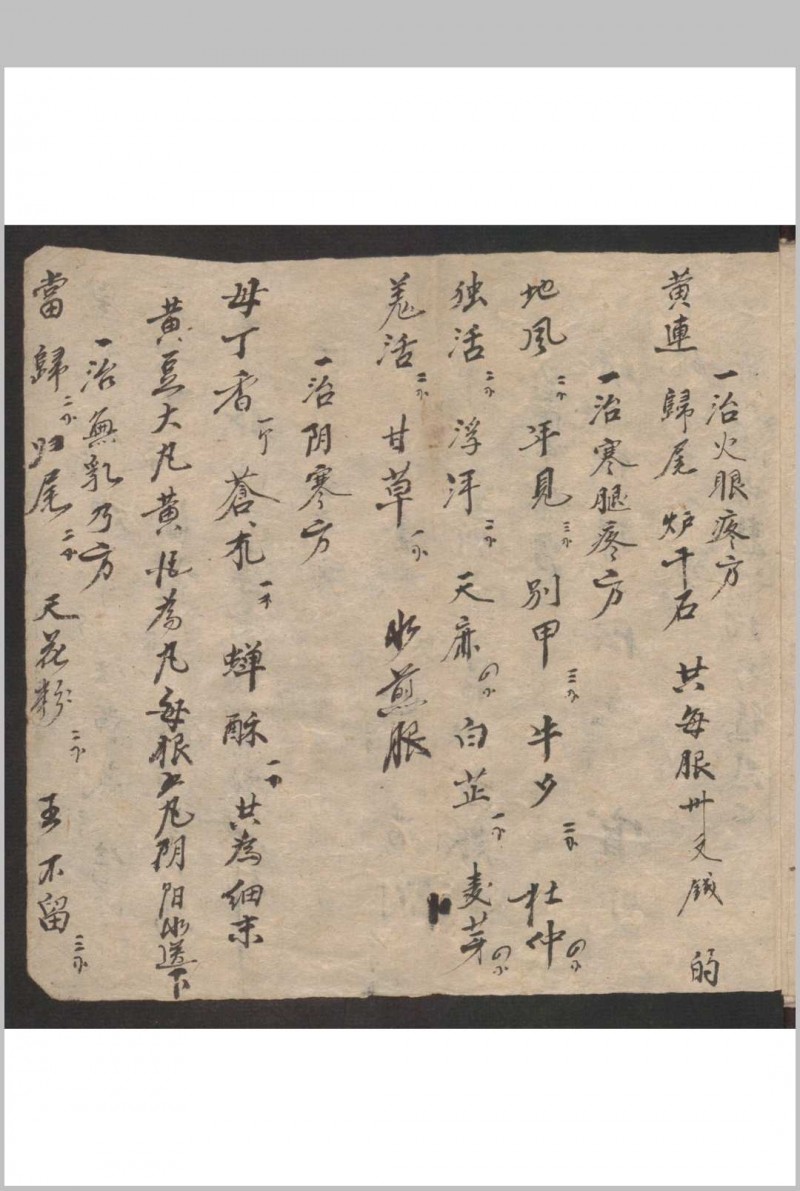 一治火眼疼方
黄連 歸尾 炉干石 共每服卅文錢的
一治寒腿疼方
地风二分 年見三分 别甲三分 牛夕二分 杜仲四分
独活二分 浮萍二分 天麻四分 白芷一分 麦芽四分
羌活二分 甘草一分 水煎服
一治阴寒方
母丁香一分 蒼术一分 蟬酥一分 共為細末
黄豆大丸黄 為丸每服 丸阴阳水送下
一治無乳乃方
當歸二分 归尾二分 天花粉二分 王不留三分